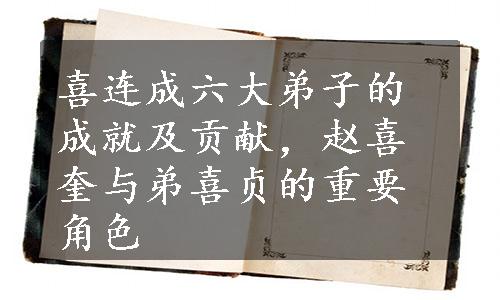 喜连成六大弟子的
成就及贡献，赵喜
奎与弟喜贞的重要
角色